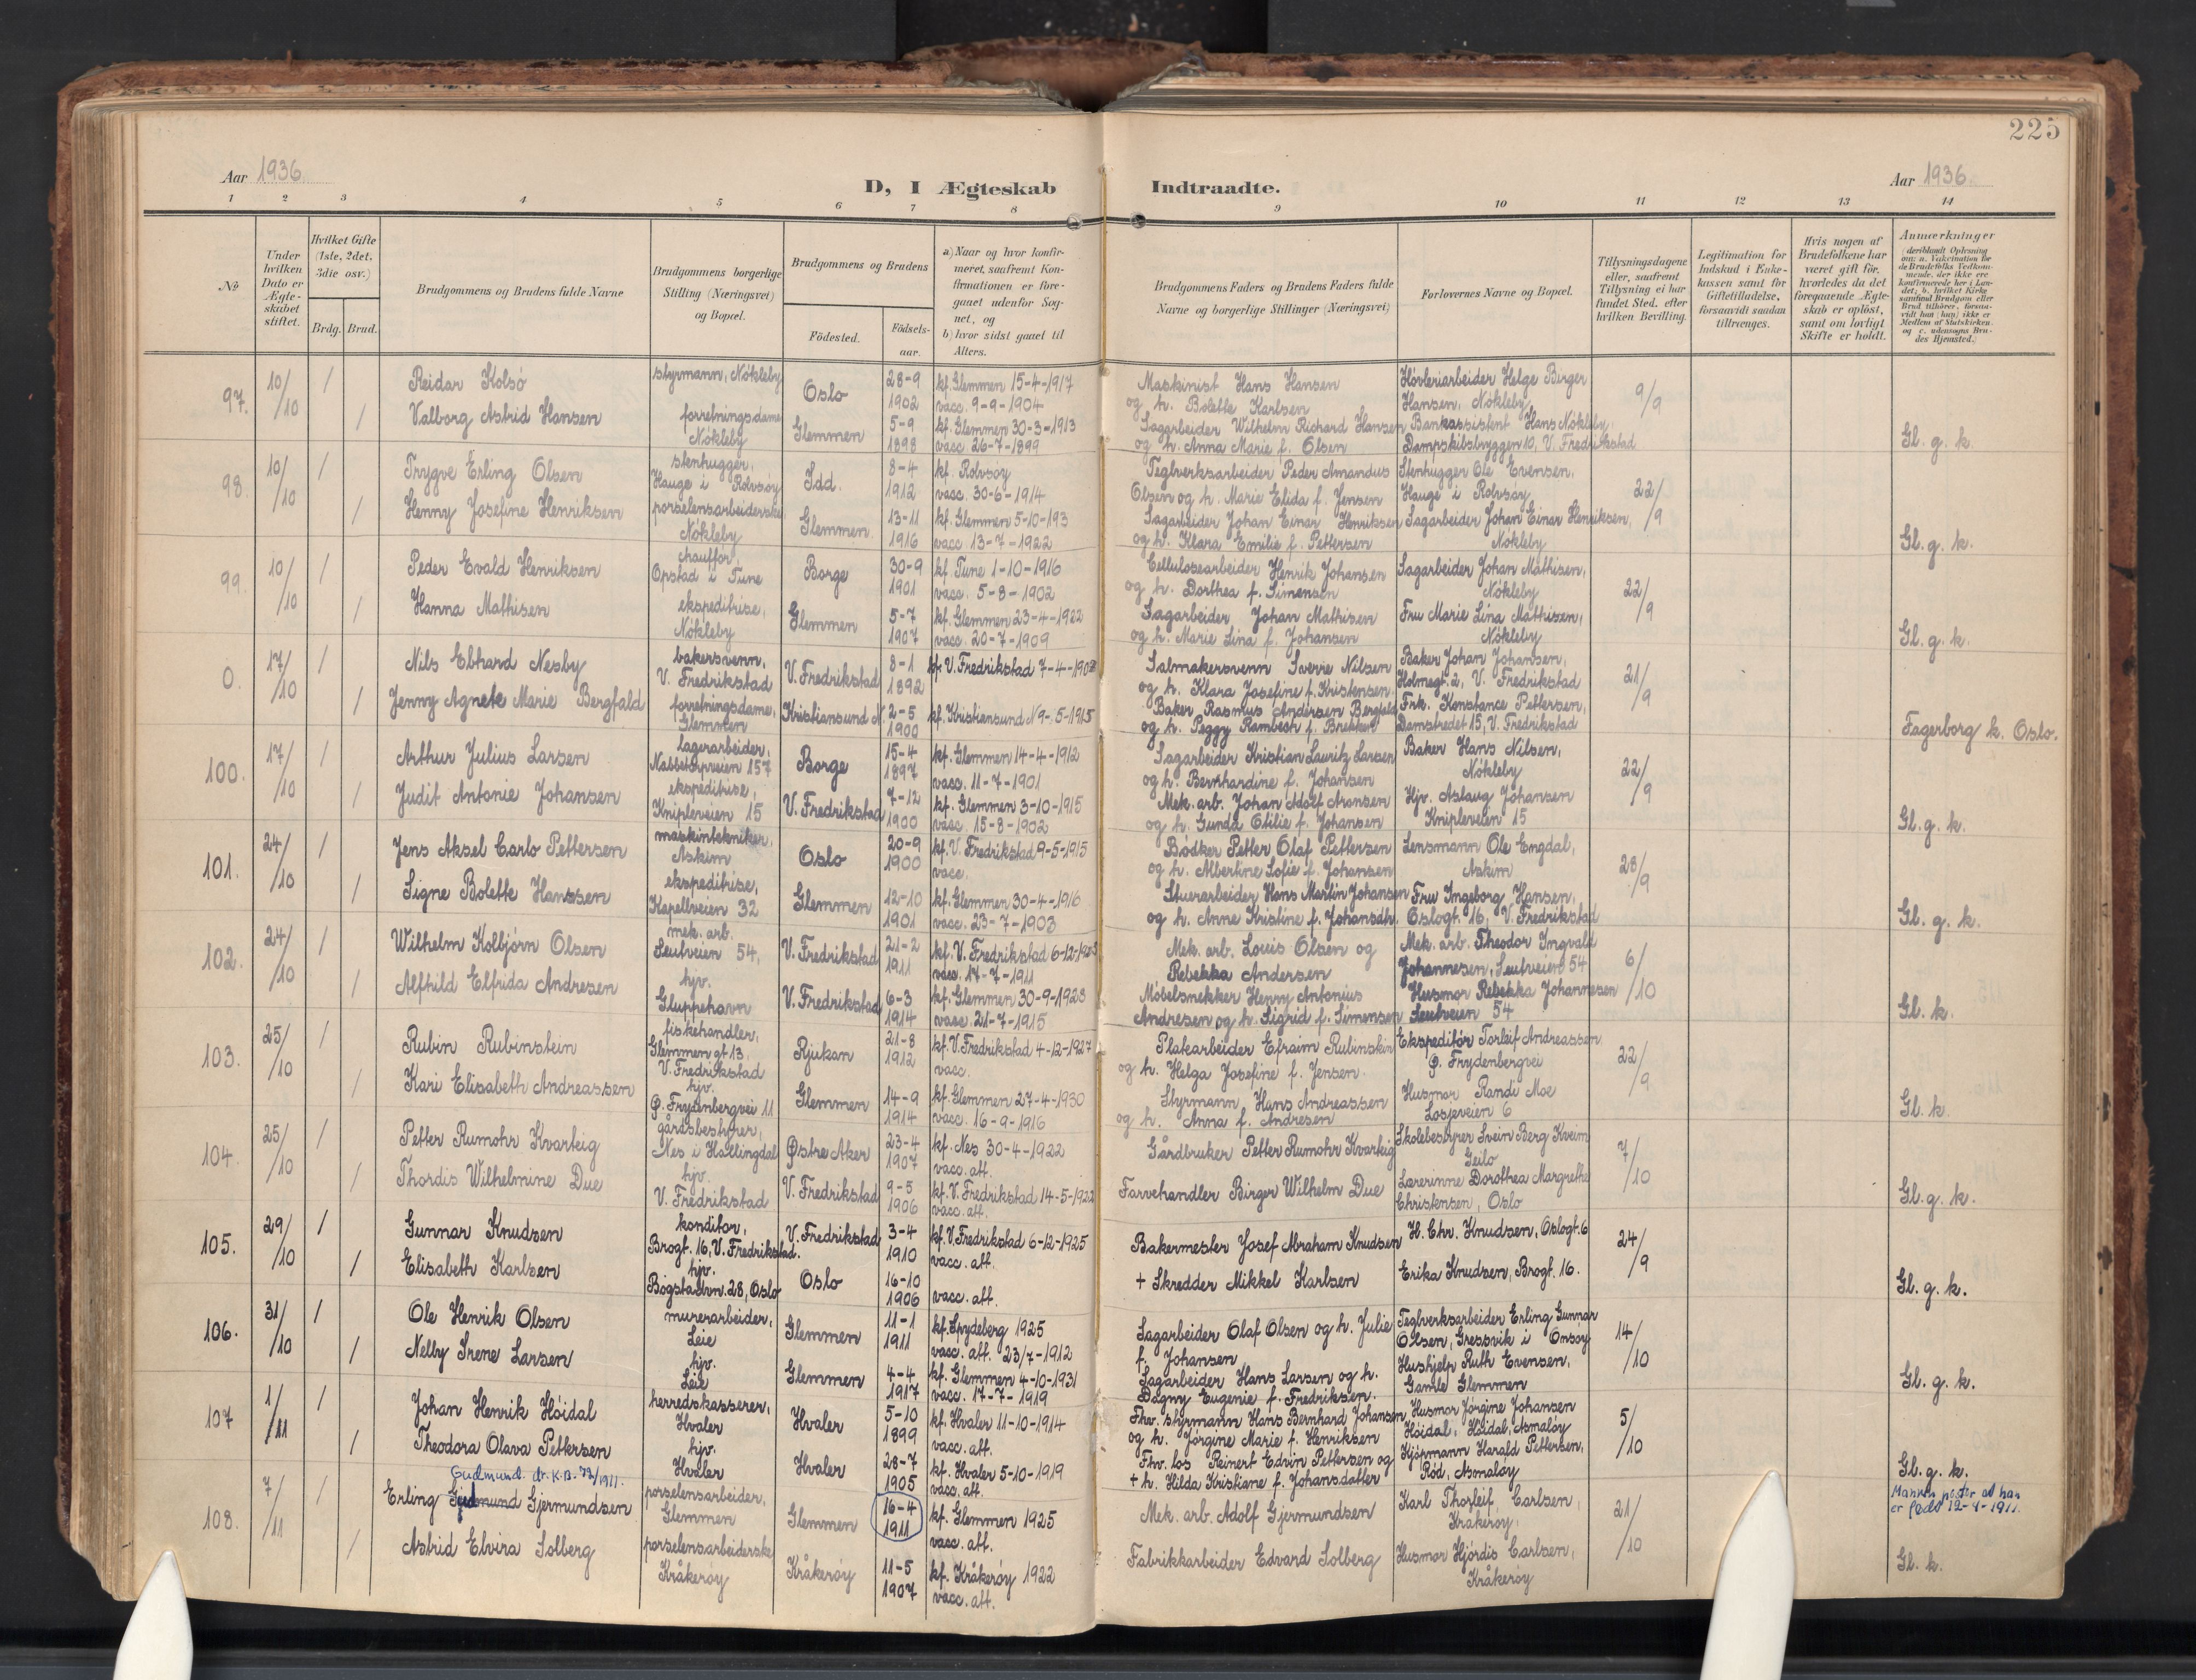 225
Aar 1936
D, I Ægteskab Indtraadte.
Aar 1936
1 2 3 4 5 6 7 8 9 10 11 12 13 14
No
Under hvilken Dato er Ægteskabet stiftet.
Hvilket Gifte (1ste, 2det, 3die osv.)
Brdg. Brud.
Brudgommens og Brudens fulde Navne
Brudgommens borgerlige Stilling (Næringsvei) og Bopæl.
Brudgommens og Brudens
Födested.
Födsels-aar.
a) Naar og hvor konfirmeret, saafremt Konfirmationen er foregaaet udenfor Sognet, og
b) hvor sidst gaaet til Alters.
Brudgommens Faders og Brudens Faders fulde Navne og borgerlige Stillinger (Næringsvei)
Forlovernes Navne og Bopæl.
Tillysningsdagene eller, saafremt Tillysning ei har fundet Sted, efter hvilken Bevilling.
Legitimation for Indskud i Enkekassen samt for Giftetilladelse, forsaavidt saadan tiltrænges.
Hvis nogen af Brudefolkene har været gift før, hvorledes da det foregaaende Ægteskab er oplöst, samt om lovligt Skifte er holdt.
Anmærkninger
97. 10/10 1 Reidar Kolsö styrmann, Nökleby Oslo 28-9 1902 kf. Glemmen 15-4-1917 vacc. 9-9-1904 Maskinist Hans Hansen og h. Bolette Karlsen Høvleriarbeider Helge Birger Hansen, Nökleby 9/9
1 Valborg Astrid Hansen forretningsdame Nökleby Glemmen 5-9 1898 kf. Glemmen 30-3-1913 vacc 26-7-1899 Sagarbeider Wilhelm Richard Hansen og h. Anna Marie f. Olsen Bankassistent Hans Nökleby, Dampskibsbryggen 10, V. Fredrikstad Gl. g. k.
98. 10/10 1 Trygve Erling Olsen stenhugger, Hauge i Rolvsøy Idd. 8-4 1912 kf. Rolvsøy vacc. 30-6-1914 Teglverksarbeider Peder Amandus Olsen og h. Marie Elida f. Jensen Stenhugger Ole Evensen, Hauge i Rolvsøy 22/9
1 Henny Josefine Henriksen porselensarbeiderske, Nökleby Glemmen 13-11 1916 kf. Glemmen 5-10-193 vacc 13-7-1922 Sagarbeider Johan Einar Henriksen og h. Klara Emilie f. Pettersen Sagarbeider Johan Einar Henriksen, Nökleby Gl. g. k.
99. 10/10 1 Peder Evald Henriksen chauffør, Opstad i Tune Borge 30-9 1901 kf. Tune 1-10-1916 vacc. 5-8-1902 Cellulosearbeider Henrik Johansen og h. Dorthea f. Simensen Sagarbeider Johan Mathisen, Nökleby 22/9
1 Hanna Mathisen ekspeditrise, Nökleby Glemmen 5-7 1907 kf. Glemmen 23-4-1922 vacc. 20-7-1909 Sagarbeider Johan Mathisen og h. Marie Lina f. Johansen Fru Marie Lina Mathisen, Nökleby Gl. g. k.
0. 17/10 1 Nils Ebhard Nesby bakersvenn, V. Fredrikstad V. Fredrikstad 8-1 1892 kf. V. Fredrikstad 7-4-1908 Salmakersvenn Sverre Nilsen og h. Klara Josefine f. Kristensen Baker Johan Johansen, Holmegt. 2, V. Fredrikstad 21/9
1 Jenny Agnete Marie Bergfald forretningsdame, Glemmen Kristiansund N. 2-5 1900 kf. Kristiansund N 9-5-1915 Baker Rasmus Andersen Bergfald og h. Peggy Rambech f. Brekken Frk. Konstance Pettersen, Damstredet 15, V. Fredrikstad Fagerborg k. Oslo.
100. 17/10 1 Arthur Julius Larsen lagerarbeider, Nabbetorpveien 157 Borge 15-4 1897 kf. Glemmen 14-4-1912 vacc. 11-7-1901 Sagarbeider Kristian Lauritz Larsen og h. Bernhardine f. Johansen Baker Hans Nilsen, Nökleby 22/9
1 Judit Antonie Johansen ekspeditrise, Knipleveien 15 V. Fredrikstad 7-12 1900 kf. Glemmen 3-10-1915 vacc. 15-8-1902 Mek. arb. Johan Adolf Aronsen og h. Gunda Otilie f. Johansen Hjv. Aslaug Johansen Knipleveien 15 Gl. g. k.
101. 24/10 1 Jens Aksel Carlo Pettersen maskintekniker, Askim Oslo 20-9 1900 kf. V. Fredrikstad 9-5-1915 vacc. Bødker Petter Olaf Pettersen og h. Albertine Sofie f. Johansen Lensmann Ole Engdal, Askim 28/9
1 Signe Bolette Hanssen ekspeditrise, Kapellveien 32 Glemmen 12-10 1901 kf. Glemmen 30-4-1916 vacc. 23-7-1903 Stuerarbeider Hans Martin Johansen og h. Anne Kristine f. Johansdtr. Fru Ingeborg Hansen, Oslogt. 16, V. Fredrikstad Gl. g. k.
102. 24/10 1 Wilhelm Kolbjörn Olsen mek. arb. Leutveien 54, V. Fredrikstad 21-2 1911 kf. V. Fredrikstad 6-12-1925 vacc. 14-7-1911 Mek. arb. Louis Olsen og Rebekka Andersen Mek. arb. Theodor Ingvald Johannesen, Leutveien 54 6/10
1 Alfhild Elfrida Andresen hjv. Gluppehavn V. Fredrikstad 6-3 1914 kf. Glemmen 30-9-1928 vacc 21-7-1915 Møbelsnekker Henry Antonius Andresen og h. Sigrid f. Simensen Husmor Rebekka Johannesen Leutveien 54 Gl. k.
103. 25/10 1 Rubin Rubinstein fiskehandler, Glemmen gt 13, V. Fredrikstad Rjukan 21-8 1912 kf. V. Fredrikstad 4-12-1927 vacc. Platarbeider Efraim Rubinstein og h. Helga Josefine f. Jensen. Ekspeditör Torleif Andreassen Ø. Frydenbergvei 22/9
1 Kari Elisabeth Andreassen hjv. Ø. Frydenbergvei 11 Glemmen 14-9 1914 kf. Glemmen 27-4-1930 vacc. 16-9-1916 Styrmann, Hans Andreassen og h. Anna f. Andresen Husmor Randi Moe Losjeveien 6 Gl. k.
104. 25/10 1 Petter Rumohr Kvarteig gårdsbestyrer, Nes i Hallingdal Østre Aker 23-4 1907 kf. Nes 30-4-1922 vacc. att. Gårdbruker Petter Rumohr Kvarteig Skolebestyrer Svein Berg Kveim Geilo 7/10
1 Thordis Wilhelmine Due hjv. V. Fredrikstad V. Fredrikstad 9-5 1906 kf. V. Fredrikstad 14-5-1922 vacc. att. Farvehandler Birger Wilhelm Due Lærerinne Dorothea Margrethe Christensen, Oslo Gl. g. k.
105. 29/10 1 Gunnar Knudsen konditor, Brogt. 16, V. Fredrikstad. V. Fredrikstad 3-4 1910 kf. V. Fredrikstad 6-12-1925 vacc. att. Bakermester Josef Abraham Knudsen H. Chr. Knudsen, Oslogt. 6 24/9
1 Elisabeth Karlsen hjv. Bogstadvn. 28, Oslo Oslo 16-10 1906 vacc. att. + Skredder Mikkel Karlsen Erika Knudsen, Brogt. 16. Gl. g. k.
106. 31/10 1 Ole Henrik Olsen murerarbeider, Leie Glemmen 11-1 1911 kf. Spydeberg 1925 vacc. att. 23/7-1912 Sagarbeider Olaf Olsen og h. Julie f. Johansen Teglverksarbeider Erling Gunnar Olsen, Gressvik i Onsøy 14/10
1 Nelly Irene Larsen hjv. Leie Glemmen 4-4 1917 kf. Glemmen 4-10-1931 vacc. 17-7-1919 Sagarbeider Hans Larsen og h. Dagny Eugenie f. Fredriksen. Hushjelp Ruth Evensen, Gamle Glemmen Gl. g. k.
107 1/11 1 Johan Henrik Höidal herredskasserer, Hvaler Hvaler 5-10 1899 kf. Hvaler 11-10-1914 vacc. att. Fhv. styrmann Hans Bernhard Johansen og h. Jörgine Marie f. Henriksen Husmor Jörgine Johansen Höidal, Höidal, Asmaløy 5/10
1 Theodora Olava Pettersen hjv. Hvaler Hvaler 28-7 1905 kf. Hvaler 5-10-1919 vacc. att. Fhv. los Reinert Edvin Pettersen og + h. Hilda Kristiane f. Johansdatter Kjöpmann Harald Pettersen, Röd, Asmaløy Gl. g. k.
Gudmund.
108. 7/11 1 Erling Gjermundsen porselensarbeider, Glemmen Glemmen 16-4 1911 kf. Glemmen 1925 vacc. att. Mek. arb. Adolf Gjermundsen Karl Thorleif Carlsen, Kråkerøy, 21/10 Mannen at han er født 12-4-1911.
1 Astrid Elvira Solberg porselensarbeiderske Kråkerøy Kråkerøy 11-5 1907 kf. Kråkerøy 1922 vacc. att. Fabrikkarbeider Edvard Solberg Husmor Hjördis Carlsen, Kråkerøy Gl. k.